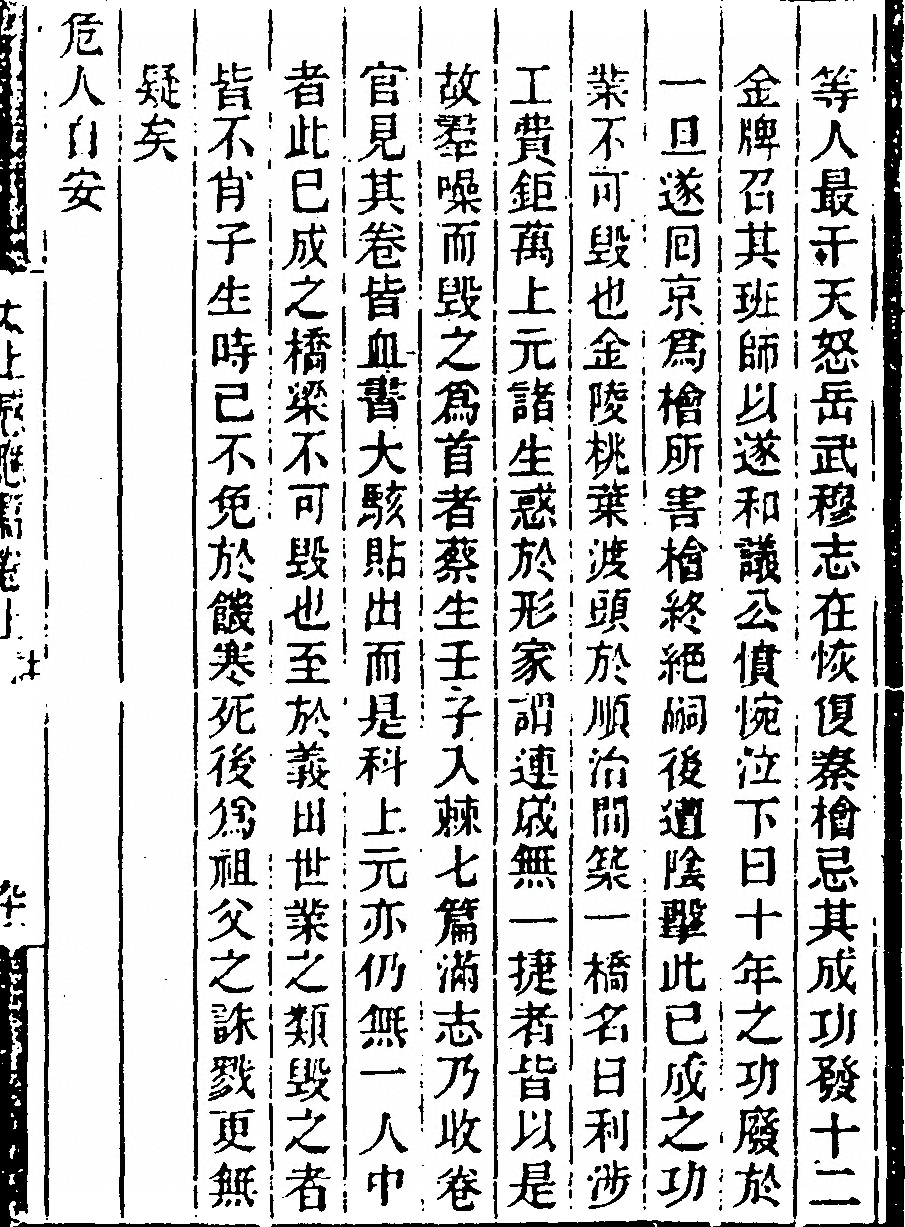 等人最干天怒岳武穆志在恢復秦檜忌其成功發十二
金牌召其班師以遂和議公憤惋泣下曰十年之功廢於
一旦遂囘京爲檜所害檜終絶嗣後遭陰擊此已成之功
業不可毀也金陵桃葉渡頭於順治間築一橋名曰利涉
工費鉅萬上元諸生惑於形家謂連歲無一捷者皆以是
故羣噪而毀之爲首者蔡生壬子入棘七篇滿志乃收卷
官見其卷皆血書大駭貼出而是科上元亦仍無一人中
者此已成之橋梁不可毀也至於義田世業之類毀之者
皆不肖子生時已不免於饑寒死後爲祖父之誅戮更無
疑矣
危人自安
太上感應篇卷上